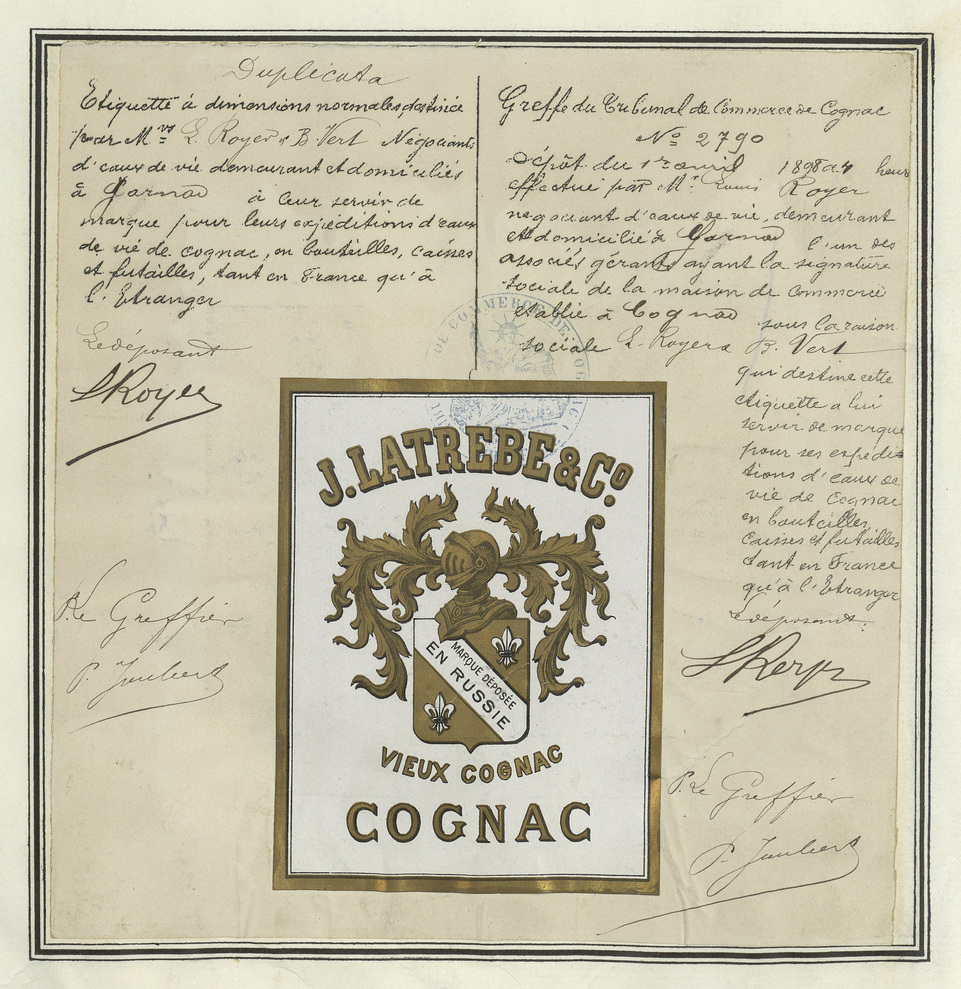 Duplicata
Etiquette à dimensions normales, destinée
par Mrs L. Royer & B. Vert Négociants
d'eaux de vie demeurant et domiciliés
à Jarnac à leur servir de
marque pour leurs expéditions d'eaux
de vie de cognac, en bouteilles, caisses
et futailles, tant en France qu'à
l'Etranger
Le déposant
LRoyer
P. Le Greffier
P. Joubert
Greffe du Tribunal de Commerce de Cognac
No 2790
Dépôt du 1er avril 1898 à 4 heures
effectué par Mr Louis Royer
négociant d'eaux de vie, demeurant
et domicilié à Jarnac l'un des
associés gérants ayant la signature
sociale de la maison de commerce
établie à Cognac sous la raison
sociale L. Royer & B. Vert
qui destine cette
étiquette à lui
servir de marque
pour ses expédi-
tions d'eaux de
vie de Cognac
en bouteilles,
caisses et futailles
tant en France
qu'à l'Etranger
Le déposant.
LRoyer
P. Le Greffier
P. Joubert
DE COMMERCE DE COGNAC
J. LATREBE & Co
MARQUE DÉPOSÉE
EN RUSSIE
VIEUX COGNAC
COGNAC